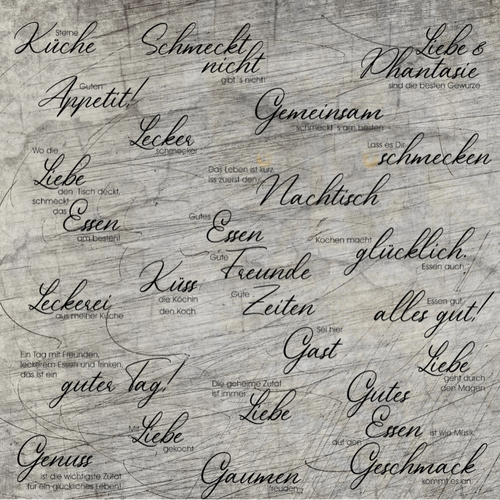 Sterne
Küche
Schmeckt
nicht
gibt´s nicht!
Liebe &
Phantasie
sind die besten Gewürze
Guten
Appetit!
Gemeinsam
schmeckt´s am besten
Lecker
schmecker
Lass es Dir
schmecken
Wo die
Liebe
den Tisch deckt,
schmeckt
das
Essen
am besten!
Das Leben ist kurz,
iss zuerst den
Nachtisch
Gutes
Essen
Gute
Freunde
Gute
Zeiten
Kochen macht
glücklich.
Essen auch.
Küss
die Köchin
den Koch
Leckerei
aus meiner Küche
Essen gut,
alles gut!
Sei hier
Gast
Ein Tag mit Freunden,
leckerem Essen und trinken,
das ist ein
guter Tag!
Liebe
geht durch
den Magen
Die geheime Zutat
ist immer
Liebe
Gutes
Essen
ist wie Musik,
Mit
Liebe
gekocht
auf den
Geschmack
kommt es an
Genuss
ist die wichtigste Zutat
für ein glückliches Leben!
Gaumen
freuden